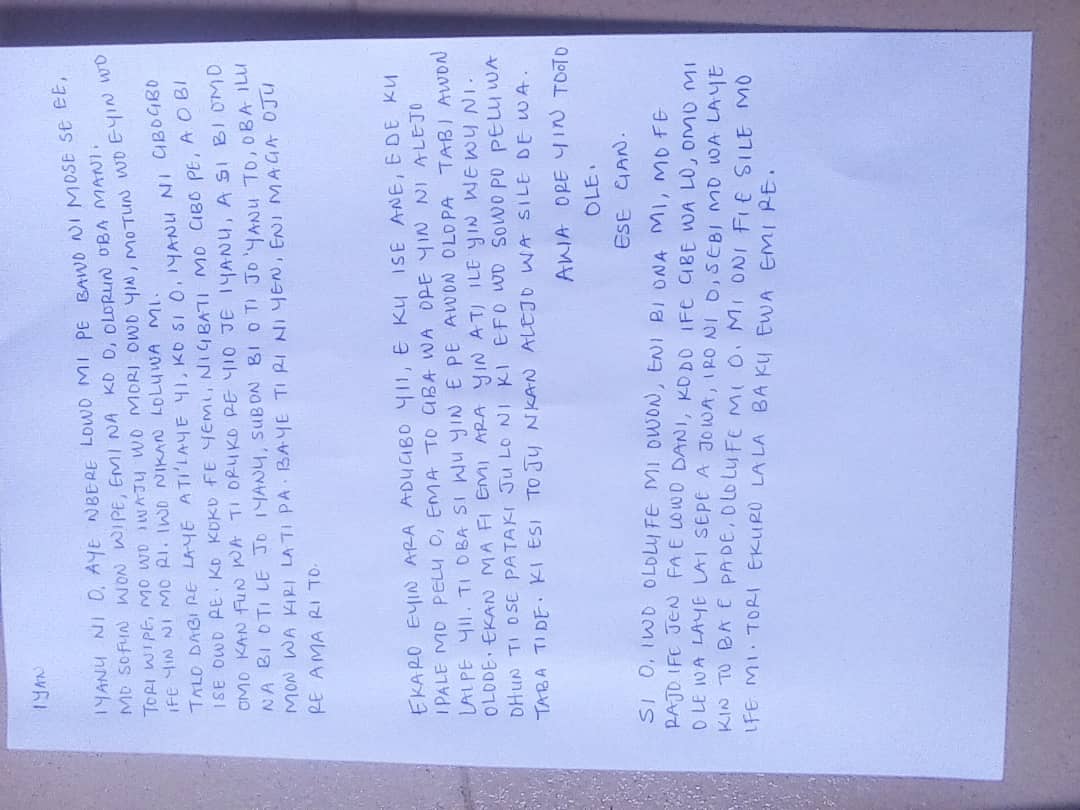 IYAN
IYANU NI O, AYE NBERE LOWO MI PE BAWO NI MOSE SE EE,
MO SOFUN WON WIPE, EMI NA KO O, OLORUN OBA MANI.
TORI WIPE, MO WO IWAJU WO MORI OWO YIN, MOTUN WO EYIN WO
IFE YIN NI MO RI. IWO NIKAN LOLUWA MI.
TALO DABI RE LAYE ATI'LAYE YI, KO SI O, IYANU NI GBOGBO
ISE OWO RE. KO KOKO FE YEMI, NIGBATI MO GBO PE, A O BI
OMO KAN FUN WA TI ORUKO RE YIO JE IYANU, A SI BI OMO
NA BI OTI LE JO IYANU, SUBON BI O TI JO 'YANU TO, OBA ILU
MON WA KIRI LATI PA. BAYE TI RI NI YEN, ENI MAGA OJU
RE AMA RI TO.
EKARO EYIN ARA ADUGBO YII, E KU ISE ANE, EDE KU
IPALE MO PELU O, EMA TO GBA WA ORE YIN NI ALEJO
LALPE YII. TI OBA SI WU YIN E PE AWON OLOPA TABI AWON
OLODE. EKAN MA FI EMI ARA YIN ATI ILE YIN WEWU NI.
OHUN TI OSE PATAKI JU LO NI KI EFO WO SOWO PO PELU WA
TABA TI DE. KI ESI TOJU NKAN ALEJO WA SILE DE WA.
AWA ORE YIN TOOTO
OLE.
ESE GAN.
SI O, IWO OLOLUFE MI OWON, ENI BI ONA MI, MO FE
RAJO IFE JEN FA E LOWO DANI, KODO IFE GBE WA LO, OMO MI
O LE WA LAYE LAI SEPE A JOWA, IRO NI O, SEBI MO WA LAYE
KIN TO BA E PADE, OLOLUFE MI O. MI ONI FI E SILE MO
IFE MI. TORI EKURO LALA BA KU EWA EMI RE.